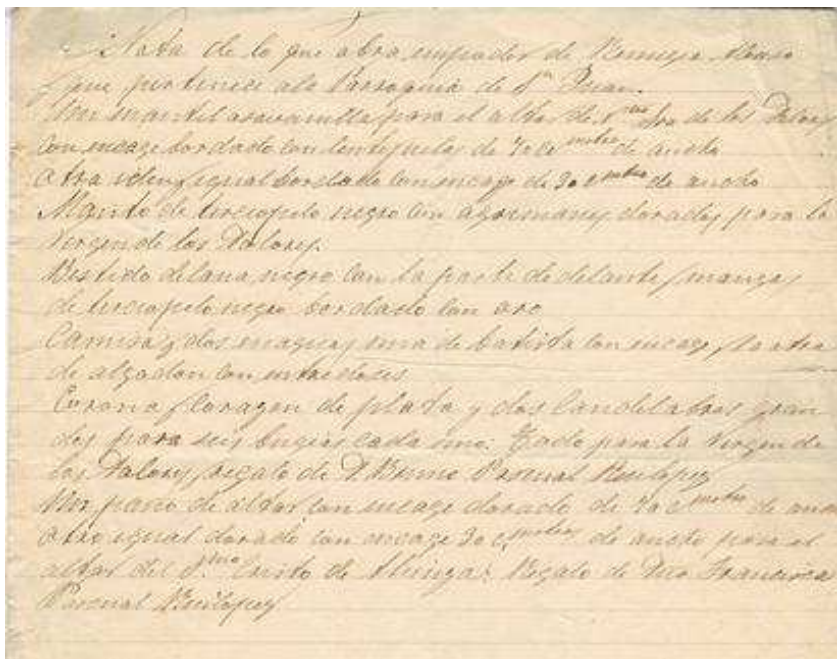 Nota de lo que obra en poder de Remigia Alvaro
que pertenece ala Parroquia de Sn Juan.
Un mantel para el altar de Ntra Sra de los Dolores
con encaje bordado con lentejuelas de 30 cmetros de ancho
otra idem igual bordado con encaje de 30 cmetros de ancho
Manto de terciopelo negro con agremanes dorados para la
Virgen de los Dolores.
Bestido de lana negro con la parte de delante y mangas
de terciopelo negro bordado con oro
Camisa y dos enaguas una de batista con encage, la otra
de algodon con entredoses
Corona y Corazon de plata y dos Candelabros gran
des para seis bugias cada uno: Todo para la Virgen de
los Dolores, regalo de D. Bruno Pascual Ruilopez
Un paño de altar con encage dorado de 30 cmetros de ancho
otro igual dorado con encage 30 cmetros de ancho para el
altar del Smo Cristo de Atienza: Regalo de Dña Francisca
Pascual Ruilopez